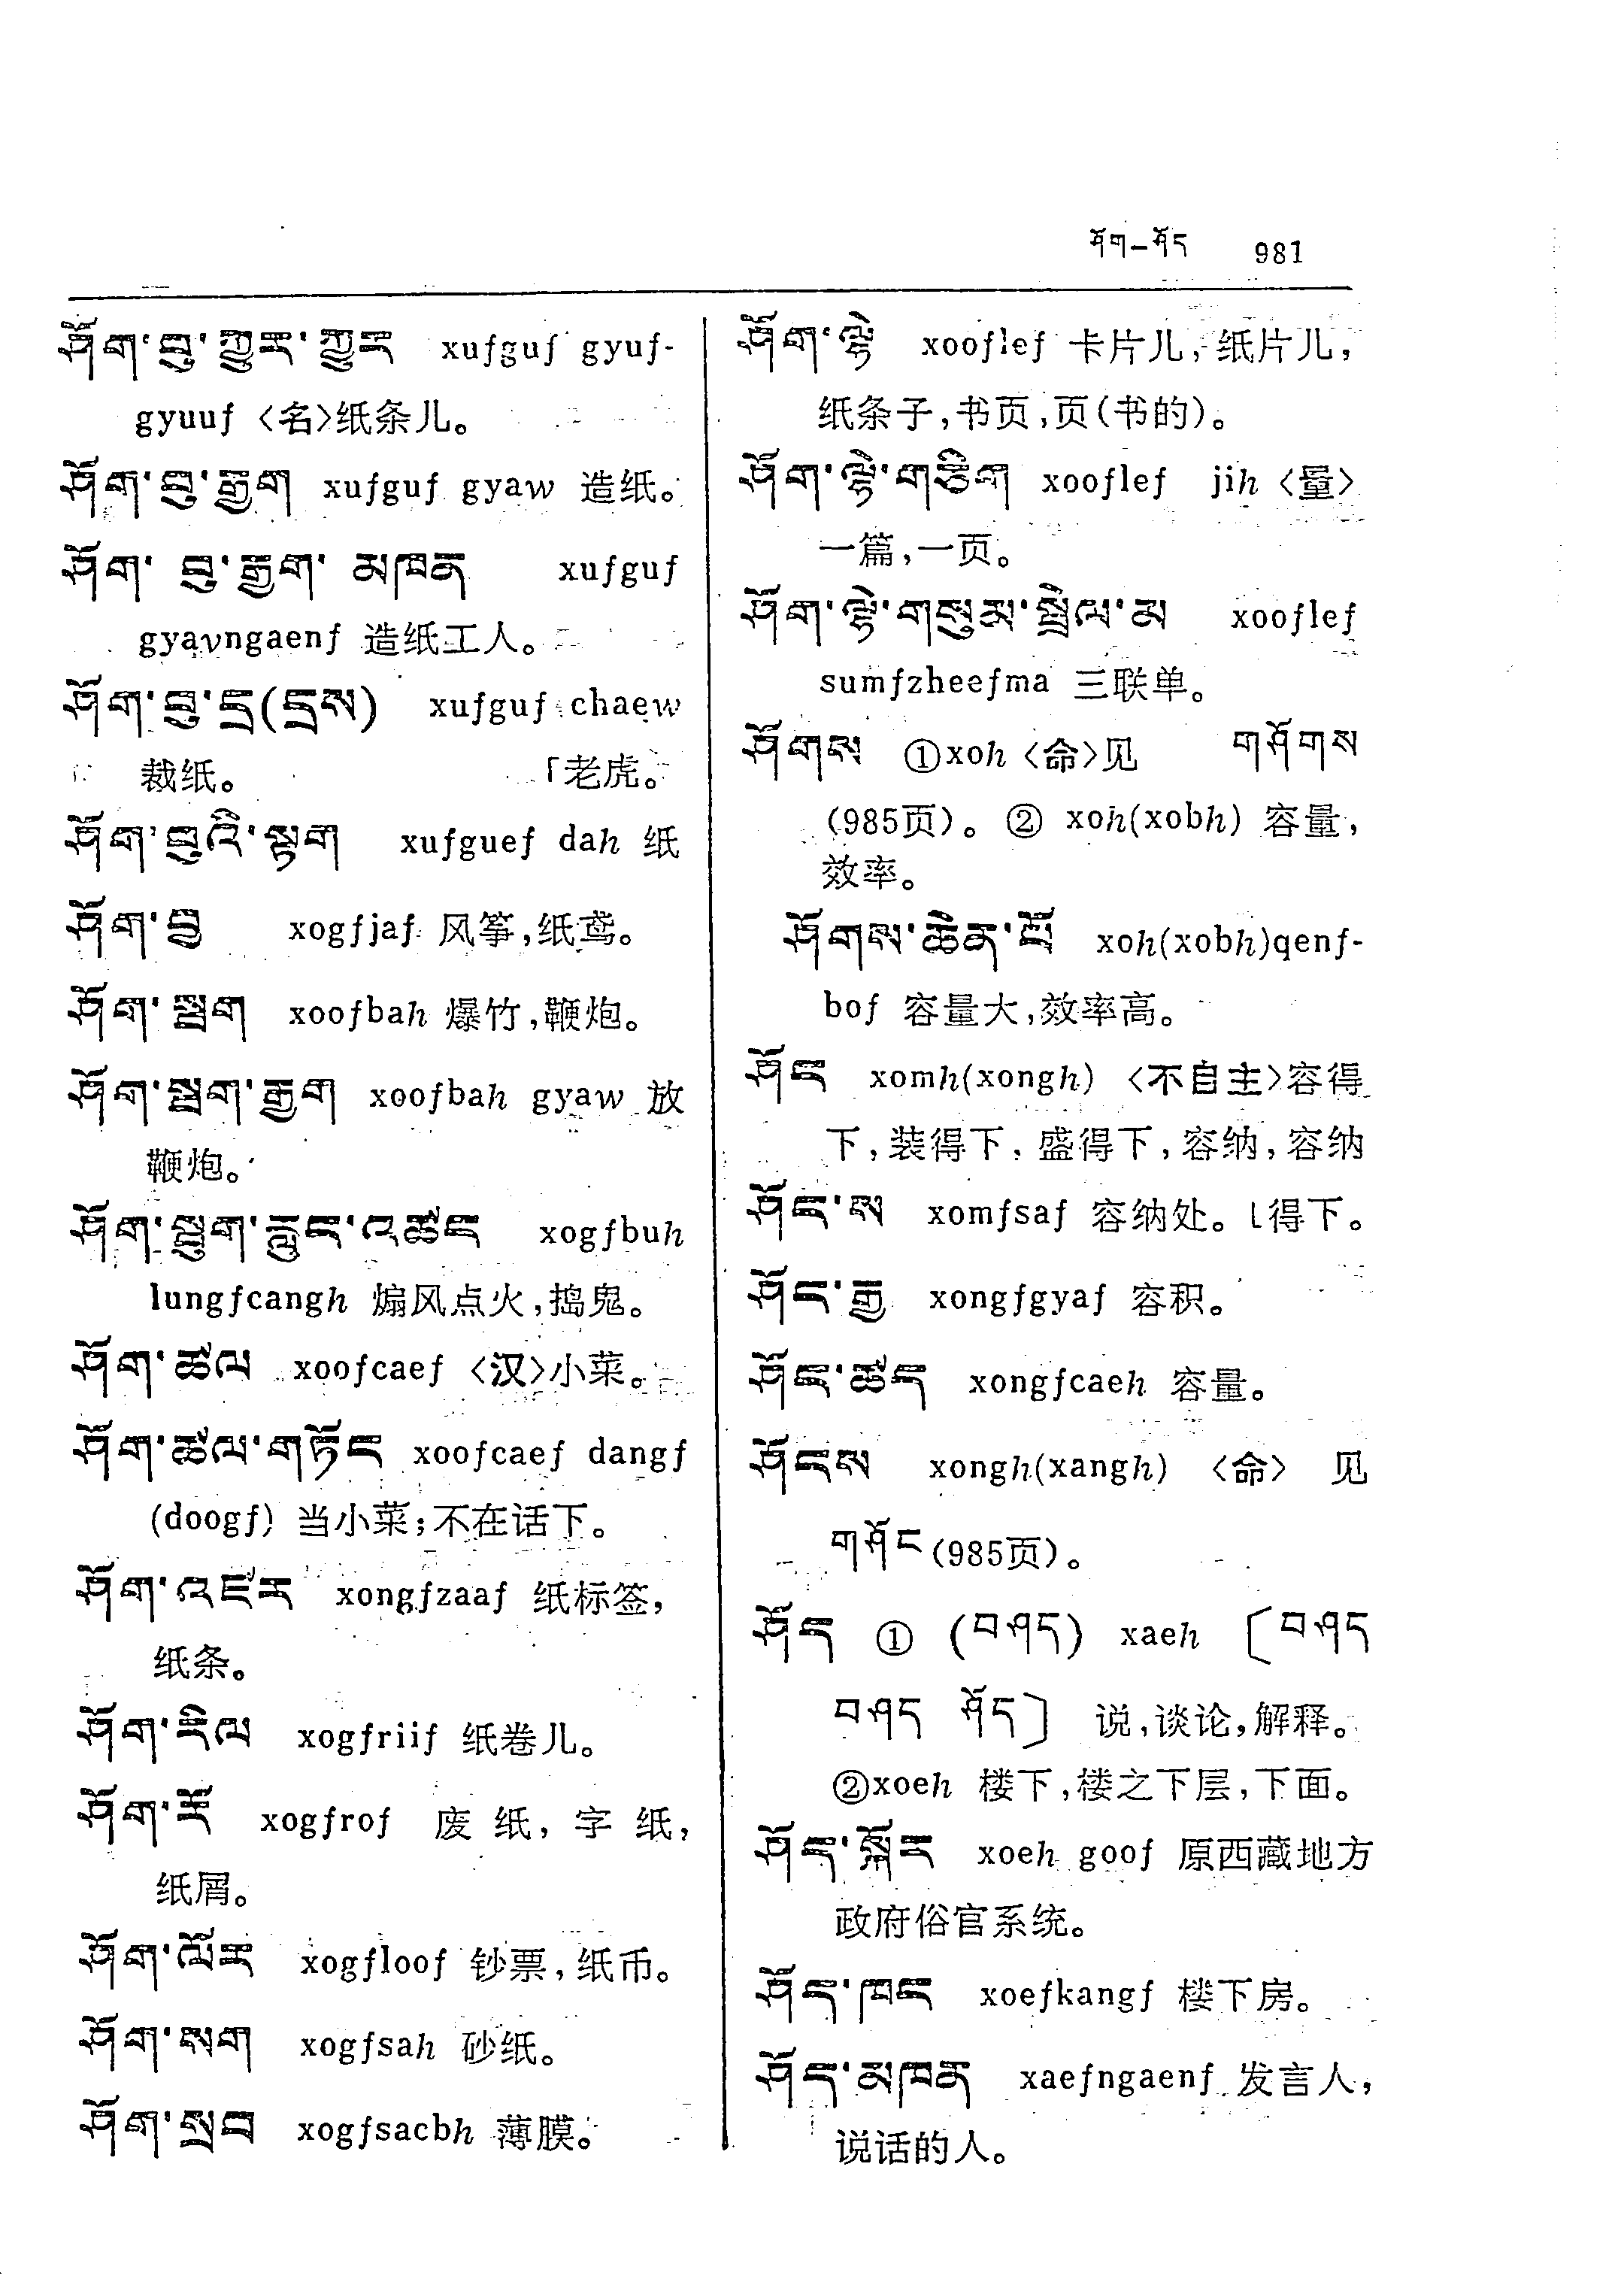 ཤོག–ཤོད 981
ཤོག་བུ་ཀྱུར་ཀྱུར xuƒguƒ gyuƒ-
gyuuƒ 〈名〉纸条儿。
ཤོག་བུ་རྒྱག xuƒguƒ gyaw 造纸。
ཤོག་བུ་རྒྱག་མཁན xuƒguƒ
gyavngaenƒ 造纸工人。
ཤོག་བུ་དྲ(དྲས) xuƒguƒ chaew
裁纸。 「老虎。
ཤོག་བུའི་སྟག xuƒgueƒ dah 纸
ཤོག་བྱ xogƒjaƒ 风筝,纸鸢。
ཤོག་སྦག xooƒbah 爆竹,鞭炮。
ཤོག་སྦག་རྒྱག xooƒbah gyaw 放
鞭炮。
ཤོག་སྦུག་རླུང་འཚང xogƒbuh
lungƒcangh 煽风点火,捣鬼。
ཤོག་ཚལ xooƒcaeƒ 〈汉〉小菜。
ཤོག་ཚལ་གཏོང xooƒcaeƒ dangƒ
(doogƒ) 当小菜;不在话下。
ཤོག་འཛར xongƒzaaƒ 纸标签,
纸条。
ཤོག་རིལ xogƒriiƒ 纸卷儿。
ཤོག་རོ xogƒroƒ 废纸,字纸,
纸屑。
ཤོག་ལོར xogƒlooƒ 钞票,纸币。
ཤོག་སག xogƒsah 砂纸。
ཤོག་སྲབ xogƒsacbh 薄膜。
ཤོག་ལྷེ xooƒleƒ 卡片儿,纸片儿,
纸条子,书页,页(书的)。
ཤོག་ལྷེ་གཅིག xooƒleƒ jih 〈量〉
一篇,一页。
ཤོག་ལྷེ་གསུམ་སྦྲེལ་མ xooƒleƒ
sumƒzheeƒma 三联单。
ཤོགས ①xoh 〈命〉见 གཤོགས
(985页)。② xoh(xobh) 容量,
效率。
ཤོགས་ཆེན་པོ xoh(xobh)qenƒ-
boƒ 容量大,效率高。
ཤོང xomh(xongh) 〈不自主〉容得
下,装得下,盛得下,容纳,容纳
ཤོང་ས xomƒsaƒ 容纳处。⌊得下。
ཤོང་རྒྱ xongƒgyaƒ 容积。
ཤོང་ཚད xongƒcaeh 容量。
ཤོངས xongh(xangh) 〈命〉 见
གཤོང(985页)。
ཤོད ① (བཤད) xaeh 〔བཤད
བཤད ཤོད〕 说,谈论,解释。
②xoeh 楼下,楼之下层,下面。
ཤོད་སྐོར xoeh gooƒ 原西藏地方
政府俗官系统。
ཤོད་ཁང xoeƒkangƒ 楼下房。
ཤོད་མཁན xaeƒngaenƒ 发言人,
说话的人。